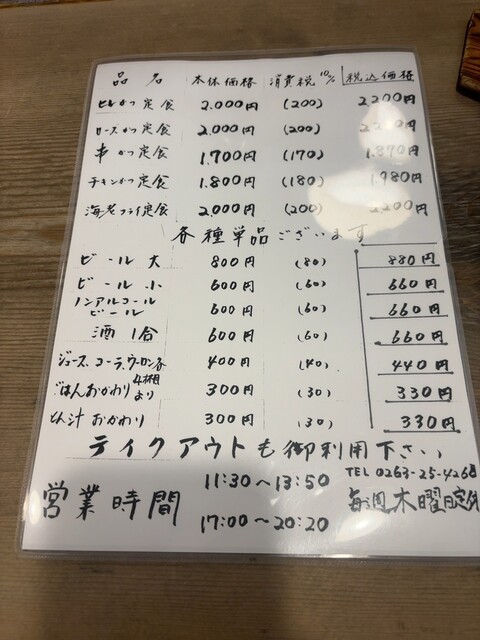 品名 本体価格 消費税10% 税込価格
ヒレかつ定食 2,000円 (200) 2200円
ロースかつ定食 2,000円 (200)
串かつ定食 1,700円 (170) 1,870円
チキンかつ定食 1,800円 (180) 1,980円
海老フライ定食 2,000円 (200) 2,200円
各種単品ございます
ビール大 800円 (80) 880円
ビール小 600円 (60) 660円
ノンアルコールビール 600円 (60) 660円
酒1合 600円 (60) 660円
ジュース、コーラ、ウーロン各 400円 (40) 440円
ごはんおかわり4杯目より 300円 (30) 330円
とん汁おかわり 300円 (30) 330円
テイクアウトも御利用下さい
営業時間 11:30~13:50
17:00~20:20
TEL 0263-25-4268
毎週木曜日定休